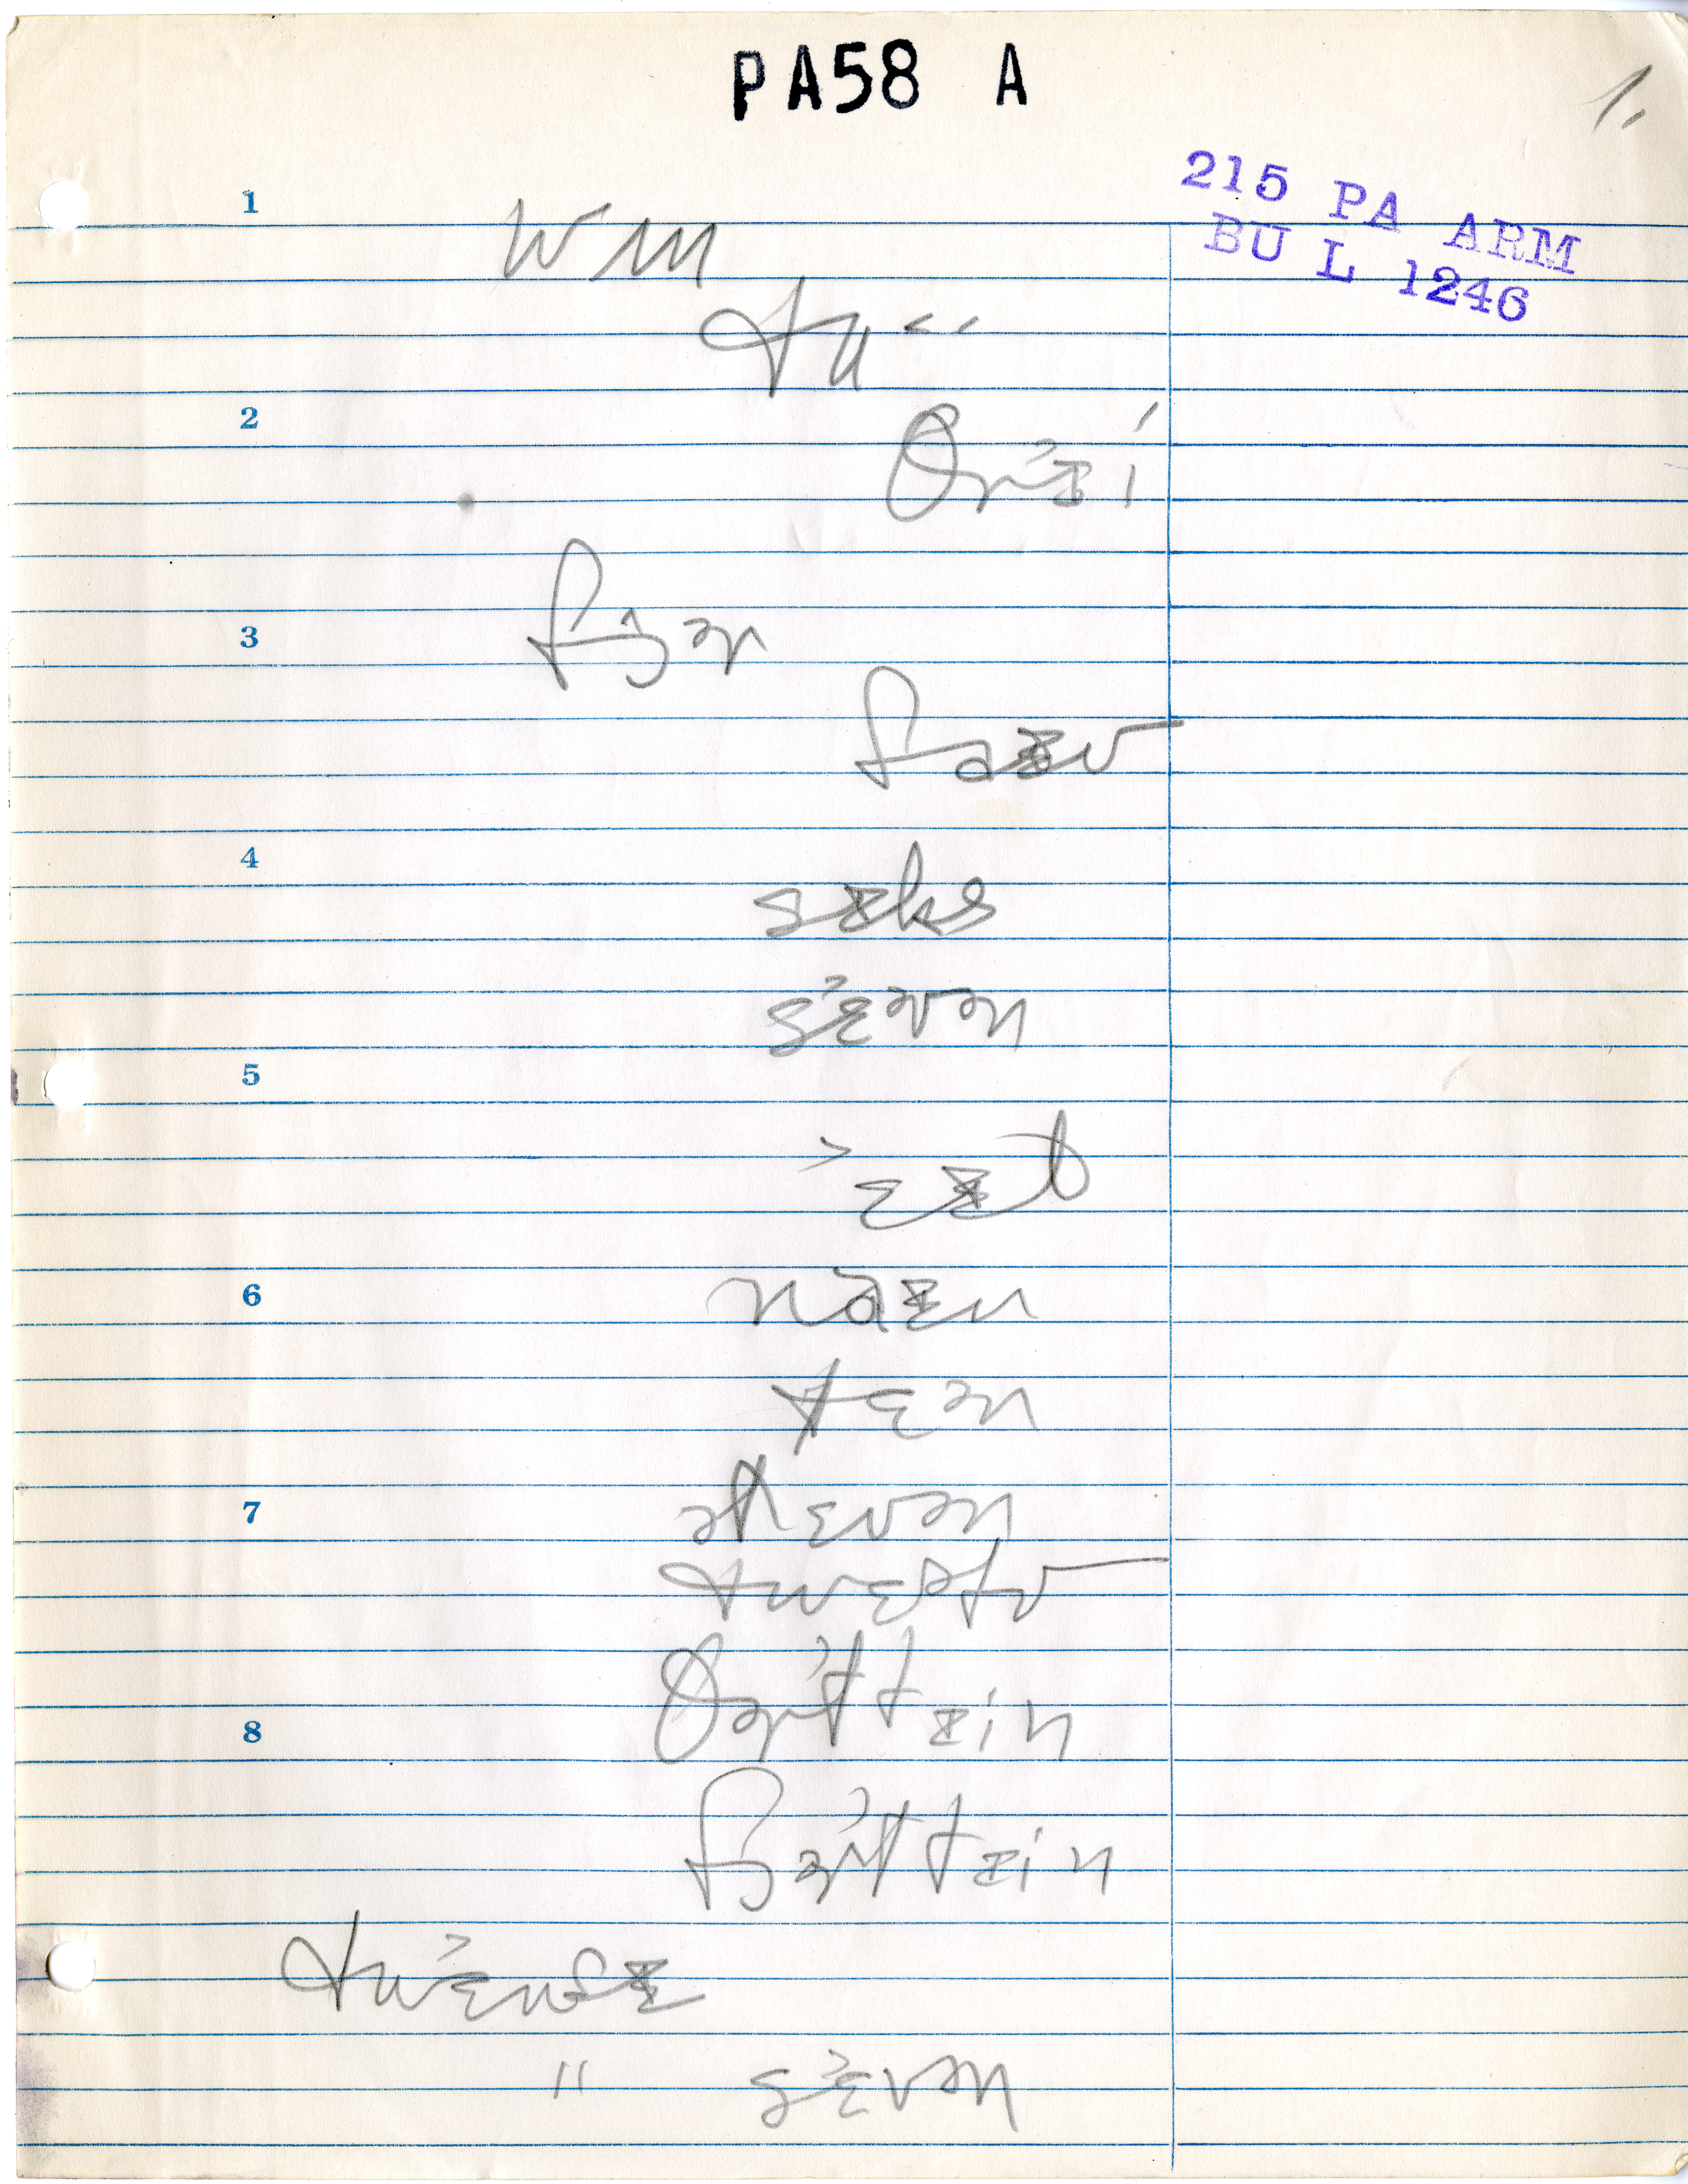 PA58 A
1.
215 PA ARM
BU L 1246
1
wʌn
tu
2
θrɪ^i
3
fɔə
faɪv
4
sɪks
sɛvən
5
ɛɪt
6
naɪn
tɛn
7
əlɛvən
twɛlv
θərtɪin
8
fɔərtɪin
twɛntɪ
" sɛvən